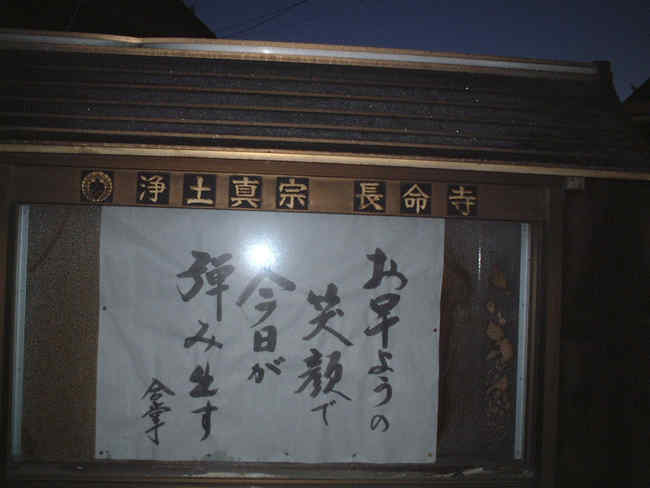 浄土真宗 長命寺
お早ようの
笑顔で
今日が
弾み生す
合掌